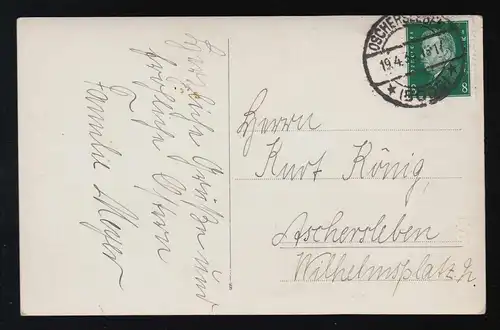 Herzliche Grüße und
fröhliche Ostern
Familie Meyer
Herrn
Kurt König,
Aschersleben
Wilhelmsplatz
OSCHERSLEBEN
19.4.
(BODE)
8